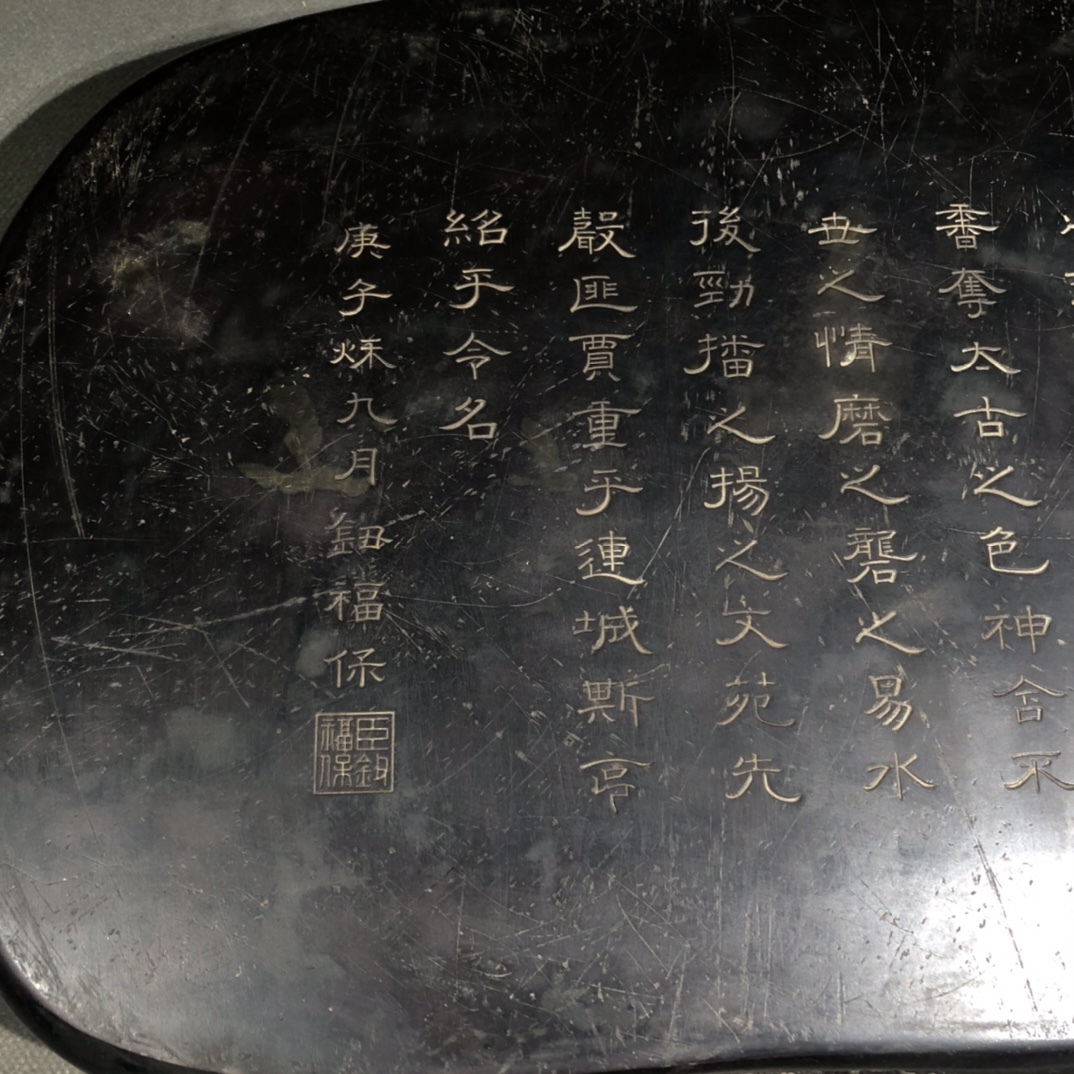 香奪太古之色神含不
世之情磨之礱之易水
後勁播之揚之文苑先
聲匪賈重乎連城斯克
紹乎令名
庚子秌九月鈕福保
臣鈕福保